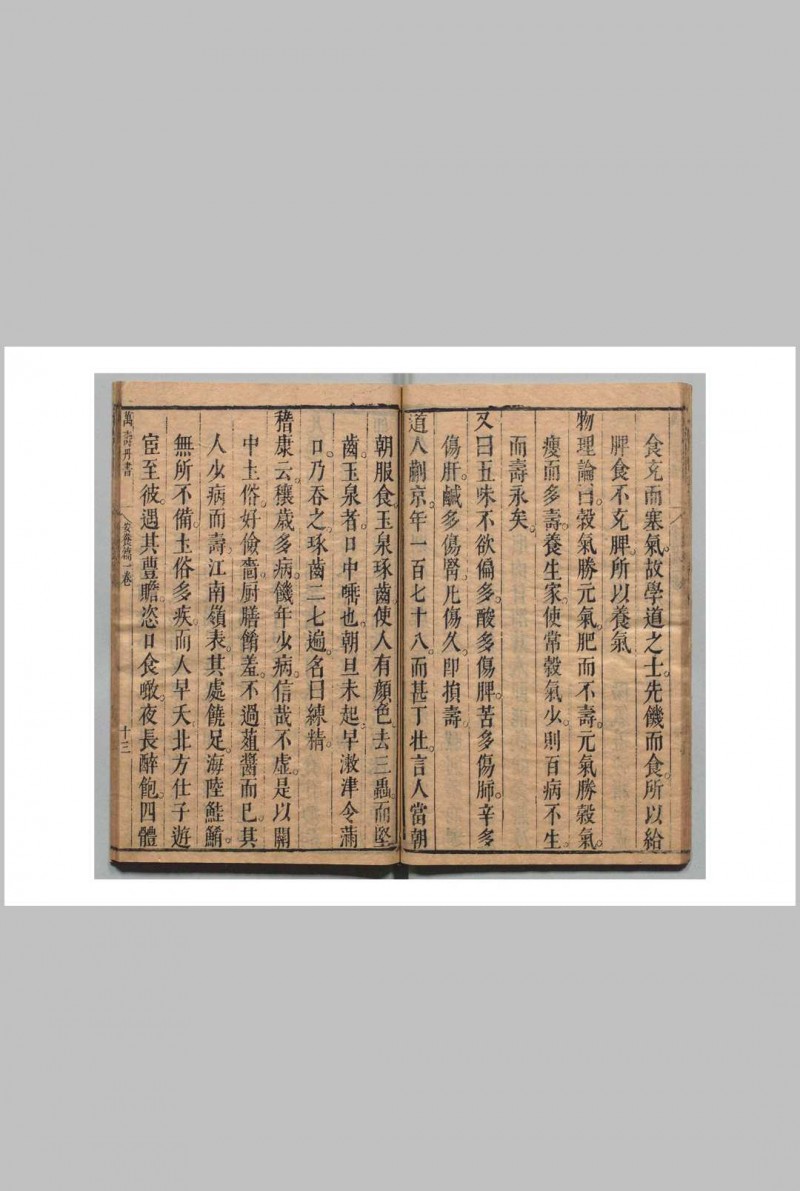 食充而塞氣。故學道之士。先饑而食。所以給
脾。食不充脾。所以養氣
物理論曰。穀氣勝元氣。肥而不壽。元氣勝穀氣。
瘦而多壽。養生家。使常穀氣少。則百病不生。
而壽永矣。
又曰五味不欲偏多。酸多傷脾。苦多傷肺。辛多
傷肝。鹹多傷腎。凡傷久。即損壽。
道人蒯京。年一百七十八。而甚丁壯。言人當朝
朝服食。玉泉琢齒。使人有顏色。去三蟲。而堅
齒。玉泉者。口中唾也。朝旦未起。早漱津令滿
口。乃吞之。琢齒二七遍。名曰練精。
嵇康云。穰歲多病。饑年少病。信哉不虛。是以關
中土俗。好儉嗇。厨膳餚羞。不過葅醬而已。其
人少病而壽。江南嶺表。其處饒足。海陸鮭餚。
無所不備。土俗多疾。而人早夭。北方仕子。遊
宦至彼。遇其豐贍。恣口食噉。夜長醉飽。四體
萬壽丹書
安養篇一卷
十三